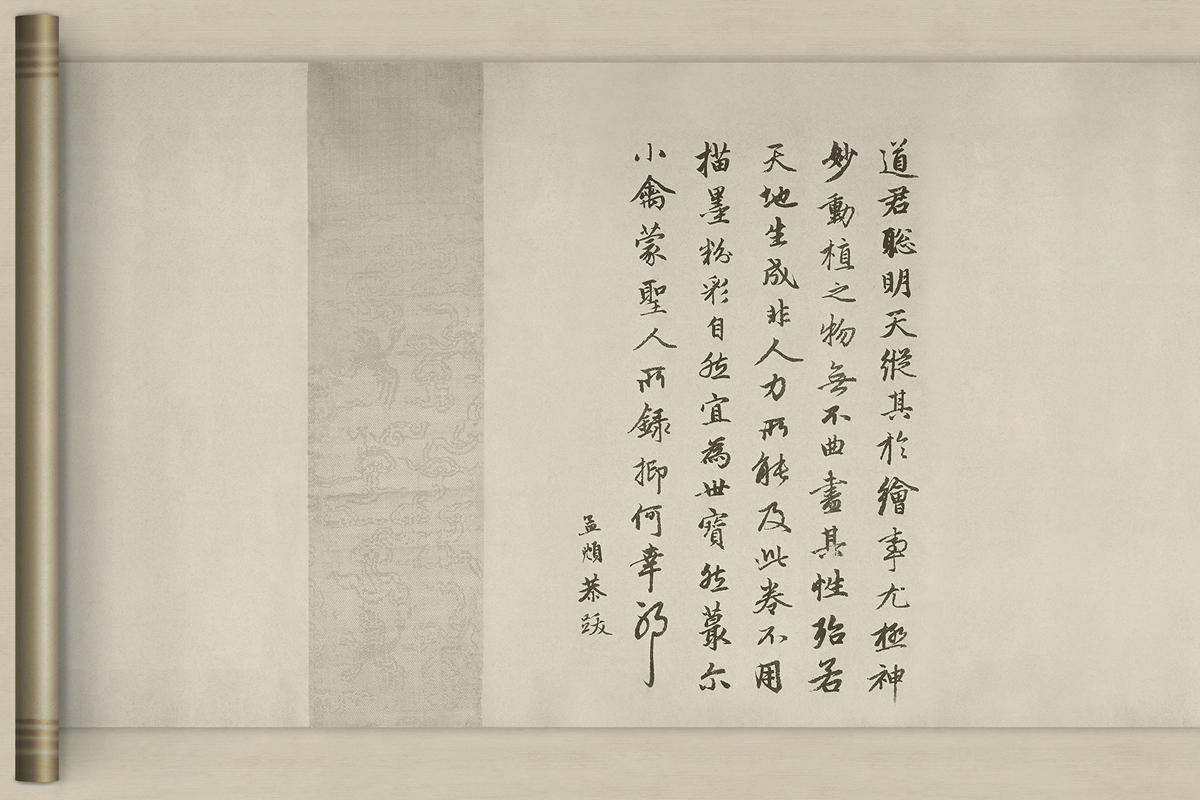 道君聡明天縱其於繪事尤極神
妙動植之物無不曲盡其性殆若
天地生成非人力所能及此卷不用
描墨粉彩自然宜為世寳然蕞尒
小禽蒙聖人所録抑何幸耶
孟頫恭跋